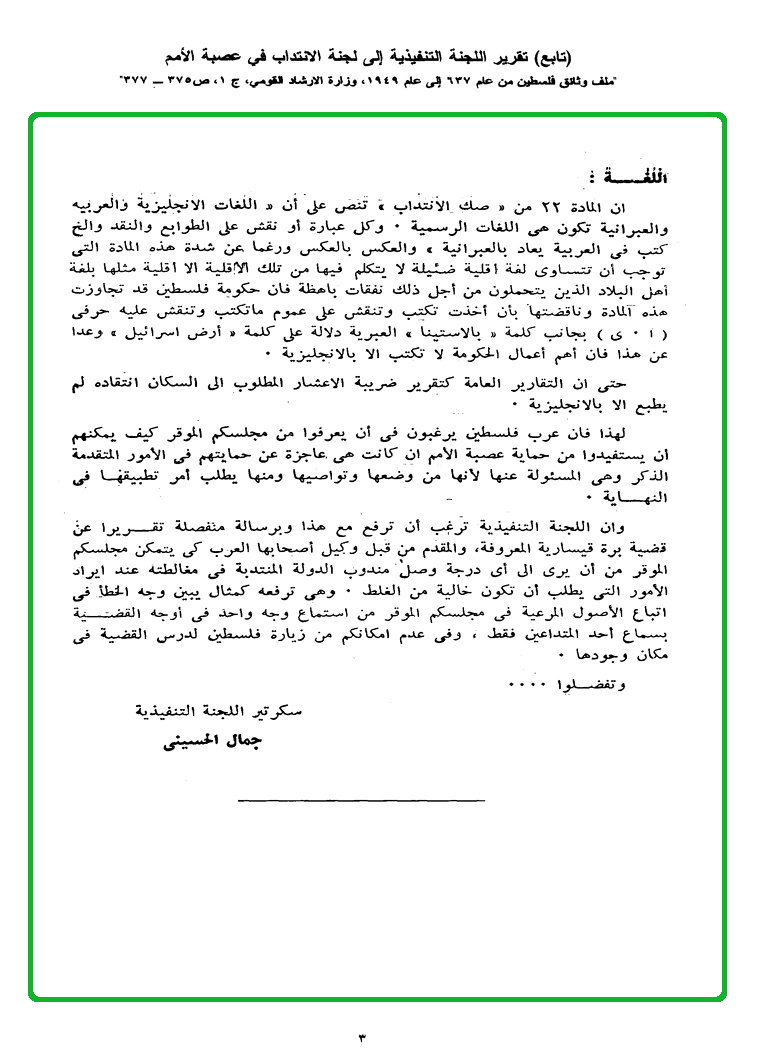 (تابع) تقرير اللجنة التنفيذية إلى لجنة الانتداب في عصبة الأمم
"ملف وثائق فلسطين من عام ٦٣٧ إلى عام ١٩٤٩، وزارة الارشاد القومي، ج ١، ص٣٧٥ ــ ٣٧٧"
اللغـــــة :
ان المادة ٢٢ من « صك الانتداب » تنص على أن « اللغات الانجليزية والعربيه
والعبرانية تكون هى اللغات الرسمية ٠ وكل عبارة أو نقش على الطوابع والنقد والخ
كتب فى العربية يعاد بالعبرانية » والعكس بالعكس ورغما عن شدة هذه المادة التى
توجب أن تتساوى لغة اقلية ضئيلة لا يتكلم فيها من تلك الأقلية الا اقلية مثلها بلغة
أهل البلاد الذين يتحملون من أجل ذلك نفقات باهظة فان حكومة فلسطين قد تجاوزت
هذه المادة وناقضتها بأن أخذت تكتب وتنقش على عموم ماتكتب وتنقش عليه حرفى
( ا ٠ ى ) بجانب كلمة « بالاستينا » العبرية دلالة على كلمة « أرض اسرائيل » وعدا
عن هذا فان أهم أعمال الحكومة لا تكتب الا بالانجليزية ٠
حتى ان التقارير العامة كتقرير ضريبة الاعشار المطلوب الى السكان انتقاده لم
يطبع الا بالانجليزية ٠
لهذا فان عرب فلسطين يرغبون فى أن يعرفوا من مجلسكم الموقر كيف يمكنهم
أن يستفيدوا من حماية عصبة الأمم ان كانت هى عاجزة عن حمايتهم فى الأمور المتقدمة
الذكر وهى المسئولة عنها لأنها من وضعها وتواصيها ومنها يطلب أمر تطبيقها فى
النهـــاية ٠
وان اللجنة التنفيذية ترغب أن ترفع مع هذا وبرسالة منفصلة تقـــريرا عن
قضية برة قيسارية المعروفة، والمقدم من قبل وكيل أصحابها العرب كى يتمكن مجلسكم
الموقر من أن يرى الى أى درجة وصل مندوب الدولة المنتدبة فى مغالطته عند ايراد
الأمور التى يطلب أن تكون خالية من الغلط ٠ وهى ترفعه كمثال يبين وجه الخطأ فى
اتباع الأصول المرعية فى مجلسكم الموقر من استماع وجه واحد فى أوجه القضـــية
بسماع أحد المتداعين فقط ، وفى عدم امكانكم من زيارة فلسطين لدرس القضية فى
مكان وجودها ٠
وتفضــلوا ٠٠٠٠
سكرتير اللجنة التنفيذية
جمال الحسينى
٣